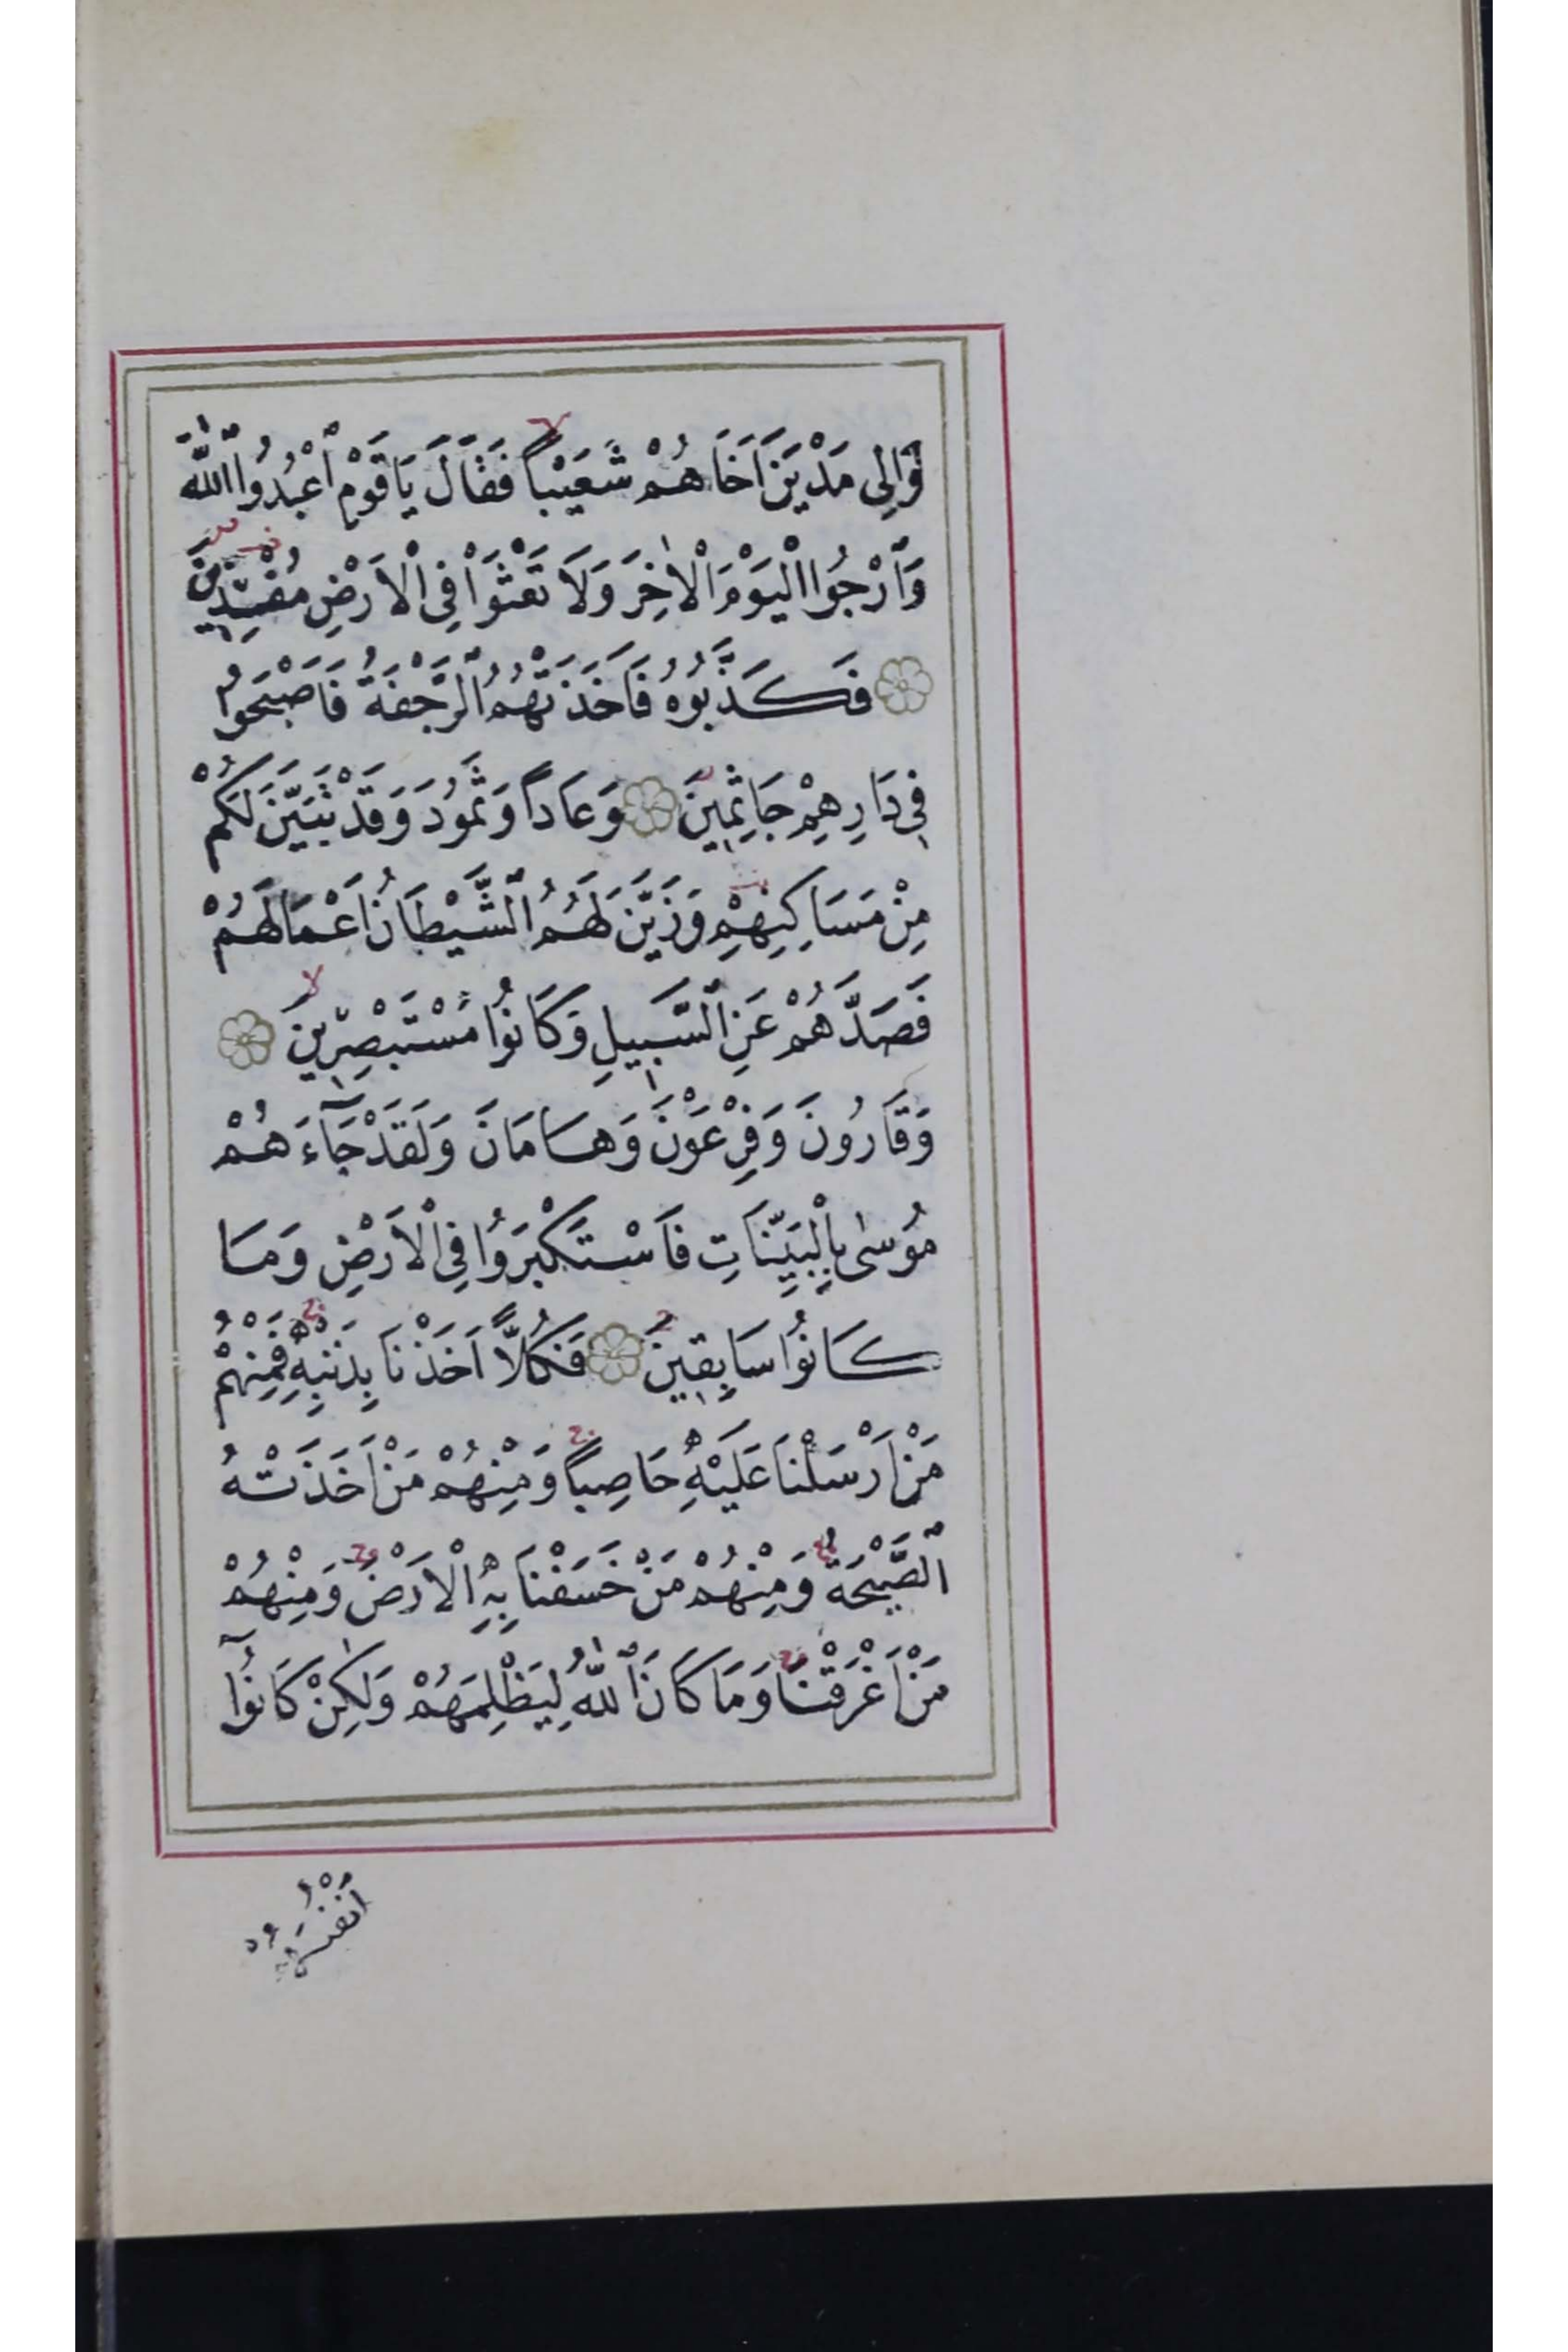 وَاِلٰى مَدْيَنَ اَخَاهُمْ شُعَيْبًا فَقَالَ يَا قَوْمِ اعْبُدُوا اللّٰهَ
وَارْجُوا الْيَوْمَ الْاٰخِرَ وَلَا تَعْثَوْا فِى الْاَرْضِ مُفْسِدِينَ
فَكَذَّبُوهُ فَاَخَذَتْهُمُ الرَّجْفَةُ فَاَصْبَحُوا
فِى دَارِهِمْ جَاثِمِينَ وَعَادًا وَثَمُودَ وَقَدْ تَبَيَّنَ لَكُمْ
مِنْ مَسَاكِنِهِمْ وَزَيَّنَ لَهُمُ الشَّيْطَانُ اَعْمَالَهُمْ
فَصَدَّهُمْ عَنِ السَّبِيلِ وَكَانُوا مُسْتَبْصِرِينَ
وَقَارُونَ وَفِرْعَوْنَ وَهَامَانَ وَلَقَدْ جَآءَهُمْ
مُوسٰى بِالْبَيِّنَاتِ فَاسْتَكْبَرُوا فِى الْاَرْضِ وَمَا
كَانُوا سَابِقِينَ فَكُلًّا اَخَذْنَا بِذَنْبِهِ فَمِنْهُمْ
مَنْ اَرْسَلْنَا عَلَيْهِ حَاصِبًا وَمِنْهُمْ مَنْ اَخَذَتْهُ
الصَّيْحَةُ وَمِنْهُمْ مَنْ خَسَفْنَا بِهِ الْاَرْضَ وَمِنْهُمْ
مَنْ اَغْرَقْنَا وَمَا كَانَ اللّٰهُ لِيَظْلِمَهُمْ وَلٰكِنْ كَانُوٓا
اَنْفُسَهُمْ